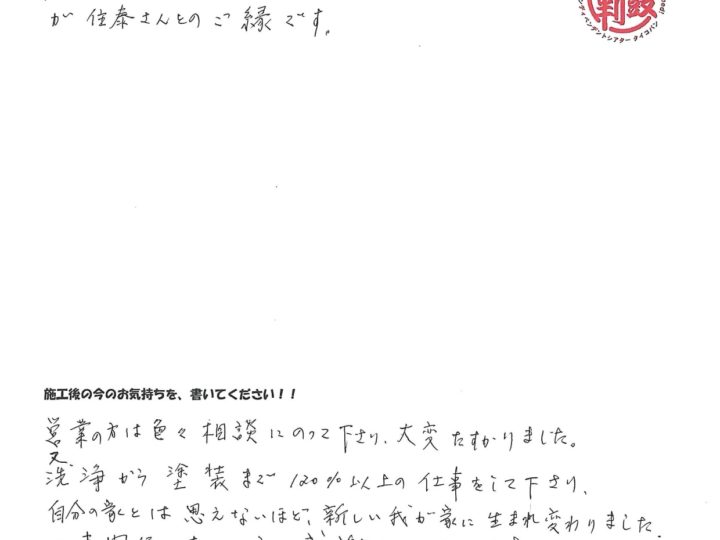 が 住泰さんとの ご縁です。
判鼓
ンディペンデントシアター タイコバン
施工後の今のお気持ちを、書いてください！！
営業の方は色々相談にのって下さり、大変たすかりました。
又
洗浄から塗装まで120%以上の仕事をして下さり、
自分の家とは思えないほど、新しい我が家に生まれ変わりました。